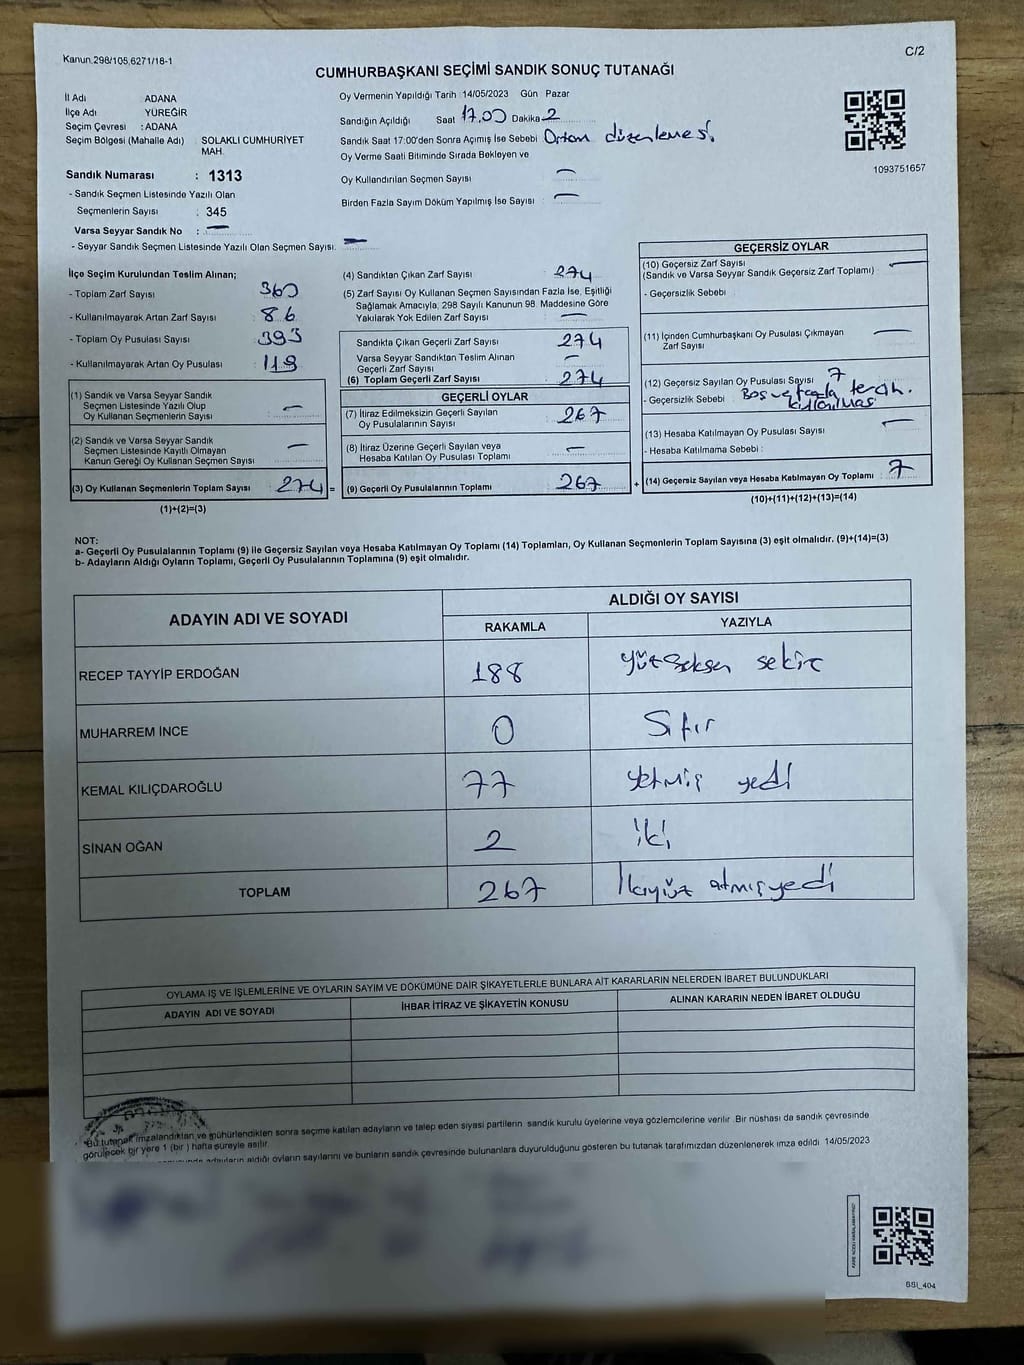 Kanun.298/105,6271/18-1
C/2
CUMHURBAŞKANI SEÇİMİ SANDIK SONUÇ TUTANAĞI
İl Adı ADANA
İlçe Adı YÜREĞİR
Seçim Çevresi : ADANA
Seçim Bölgesi (Mahalle Adı) SOLAKLI CUMHURİYET
MAH.
Sandık Numarası : 1313
- Sandık Seçmen Listesinde Yazılı Olan
Seçmenlerin Sayısı : 345
Varsa Seyyar Sandık No : —
- Seyyar Sandık Seçmen Listesinde Yazılı Olan Seçmen Sayısı. —
Oy Vermenin Yapıldığı Tarih 14/05/2023 Gün Pazar
Sandığın Açıldığı Saat 17.00 Dakika 2
Sandık Saat 17:00'den Sonra Açımış İse Sebebi Ortam düzenlemesi.
Oy Verme Saati Bitiminde Sırada Bekleyen ve
Oy Kullandırılan Seçmen Sayısı : —
Birden Fazla Sayım Döküm Yapılmış İse Sayısı : —
1093751657
İlçe Seçim Kurulundan Teslim Alınan;
- Toplam Zarf Sayısı : 360
- Kullanılmayarak Artan Zarf Sayısı : 86
- Toplam Oy Pusulası Sayısı : 393
- Kullanılmayarak Artan Oy Pusulası : 119
(1) Sandık ve Varsa Seyyar Sandık
Seçmen Listesinde Yazılı Olup
Oy Kullanan Seçmenlerin Sayısı : —
(2) Sandık ve Varsa Seyyar Sandık
Seçmen Listesinde Kayıtlı Olmayan
Kanun Gereği Oy Kullanan Seçmen Sayısı : —
(3) Oy Kullanan Seçmenlerin Toplam Sayısı : 274 =
(1)+(2)=(3)
(4) Sandıktan Çıkan Zarf Sayısı : 274
(5) Zarf Sayısı Oy Kullanan Seçmen Sayısından Fazla İse, Eşitliği
Sağlamak Amacıyla, 298 Sayılı Kanunun 98. Maddesine Göre
Yakılarak Yok Edilen Zarf Sayısı : —
Sandıkta Çıkan Geçerli Zarf Sayısı : 274
Varsa Seyyar Sandıktan Teslim Alınan
Geçerli Zarf Sayısı : —
(6) Toplam Geçerli Zarf Sayısı : 274
GEÇERLİ OYLAR
(7) İtiraz Edilmeksizin Geçerli Sayılan
Oy Pusulalarının Sayısı : 267
(8) İtiraz Üzerine Geçerli Sayılan veya
Hesaba Katılan Oy Pusulası Toplamı : —
(9) Geçerli Oy Pusulalarının Toplamı : 267 +
GEÇERSİZ OYLAR
(10) Geçersiz Zarf Sayısı : —
(Sandık ve Varsa Seyyar Sandık Geçersiz Zarf Toplamı)
- Geçersizlik Sebebi
(11) İçinden Cumhurbaşkanı Oy Pusulası Çıkmayan
Zarf Sayısı : —
(12) Geçersiz Sayılan Oy Pusulası Sayısı : 7
- Geçersizlik Sebebi : Boş ve fazla tercih.
kullanılması
(13) Hesaba Katılmayan Oy Pusulası Sayısı : —
- Hesaba Katılmama Sebebi :
(14) Geçersiz Sayılan veya Hesaba Katılmayan Oy Toplamı : 7
(10)+(11)+(12)+(13)=(14)
NOT:
a- Geçerli Oy Pusulalarının Toplamı (9) ile Geçersiz Sayılan veya Hesaba Katılmayan Oy Toplamı (14) Toplamları, Oy Kullanan Seçmenlerin Toplam Sayısına (3) eşit olmalıdır. (9)+(14)=(3)
b- Adayların Aldığı Oyların Toplamı, Geçerli Oy Pusulalarının Toplamına (9) eşit olmalıdır.
ADAYIN ADI VE SOYADI ALDIĞI OY SAYISI
RAKAMLA YAZIYLA
RECEP TAYYİP ERDOĞAN 188 Yüzseksen sekiz
MUHARREM İNCE 0 Sıfır
KEMAL KILIÇDAROĞLU 77 yetmiş yedi
SİNAN OĞAN 2 iki
TOPLAM 267 İkiyüz atmışyedi
OYLAMA İŞ VE İŞLEMLERİNE VE OYLARIN SAYIM VE DÖKÜMÜNE DAİR ŞİKAYETLERLE BUNLARA AİT KARARLARIN NELERDEN İBARET BULUNDUKLARI
ADAYIN ADI VE SOYADI İHBAR İTİRAZ VE ŞİKAYETİN KONUSU ALINAN KARARIN NEDEN İBARET OLDUĞU
Bu tutanak imzalandıktan ve mühürlendikten sonra seçime katılan adayların ve talep eden siyasi partilerin sandık kurulu üyelerine veya gözlemcilerine verilir. Bir nüshası da sandık çevresinde
görülecek bir yere 1 (bir) hafta süreyle asılır
adayların aldığı oyların sayılarını ve bunların sandık çevresinde bulunanlara duyurulduğunu gösteren bu tutanak tarafımızdan düzenlenerek imza edildi 14/05/2023
SSI_404